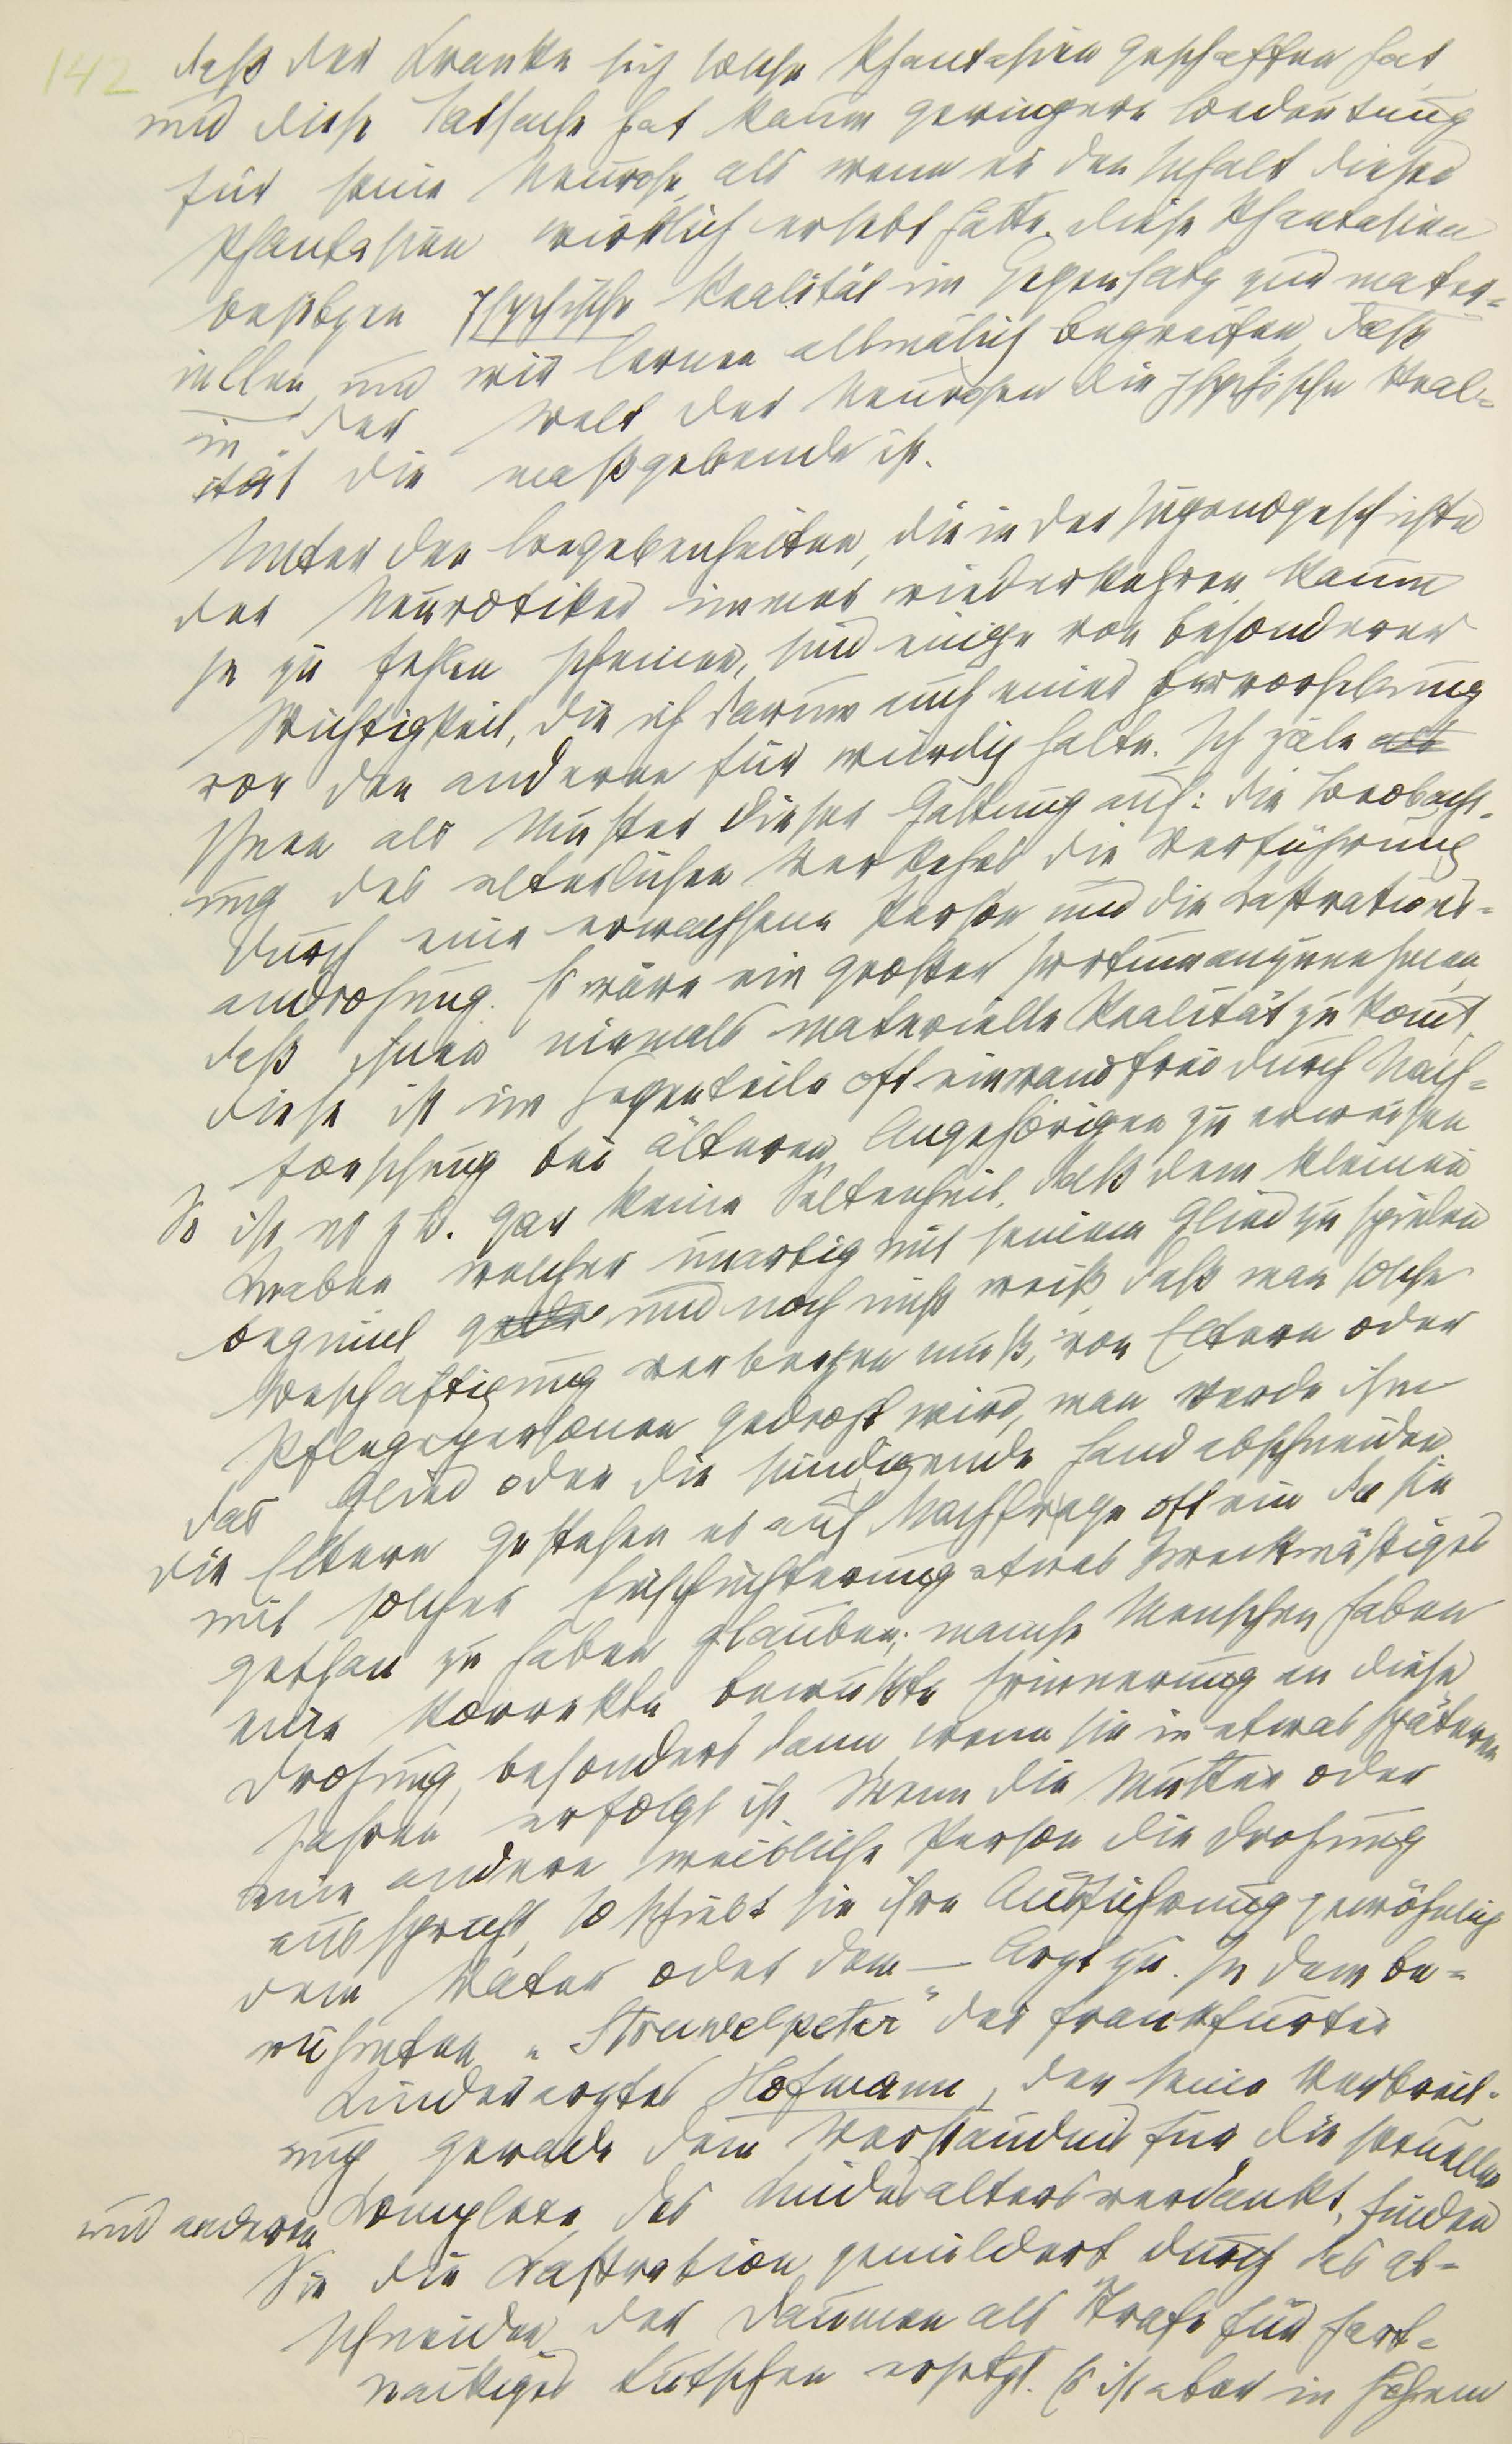 142
daß der Kranke sich solche Phantasien geschaffen hat
und diese Tatsache hat kaum geringere Bedeutung
für seine Neurose, als wenn er den Inhalt dieser
Phantasien wirklich erlebt hätte. Diese Phantasien
besitzen psychische Realität im Gegensatz zur mater=
iellen, und wir lernen allmälich begreifen, daß
in der Welt der Neurosen die psychische Real=
ität die maßgebende ist.
Unter den Begebenheiten, die in der Jugendgeschichte
der Neurotiker immer wiederkehren, kaum
je zu fehlen scheinen, sind einige von besonderer
Wichtigkeit, die ich darum auch einer Hervorhebung
vor den anderen für würdig halte. Ich zäle als
Ihnen als Muster dieser Gattung auf: die Beobacht-
ung des elterlichen Verkehrs die Verführung
durch eine erwachsene Person und die Kastrations=
androhung. Es wäre ein großer Irrtum anzunehmen,
daß ihnen niemals materielle Realität zu komt,
diese ist im Gegenteile oft einwandfrei durch Nach=
forschung bei älteren Angehörigen zu erweisen
So ist es z B. gar keine Seltenheit, daß dem kleinen
Knaben welcher unartig mit seinem Glied zu spielen
beginnt und noch nicht weiß, daß man solche
Beschäftigung verbergen muß, von Eltern oder
Pflegepersonen gedroht wird, man werde ihm
das Glied oder die sündigende Hand abschneiden.
Die Eltern gestehen es auf Nachfrage oft ein da sie
mit solcher Einschüchterung etwas Zweckmäßiges
gethan zu haben glauben; manche Menschen haben
eine korrekte bewußte Erinnerung an diese
Drohung, besonders dann, wenn sie in etwas späteren
Jahren erfolgt ist. Wenn die Mutter oder
eine andere weibliche Person die Drohung
ausspricht, so schiebt sie ihre Ausführung gewöhnlich
dem Vater oder dem — Arzt zu. In dem be=
rühmten „Struwelpeter" des Frankfurter
Kinderarztes Hofmann, der seine Verbreit-
ung gerade dem Verständnis für die sexuellen
und anderen Komplexe des Kindesalters verdankt, finden
Sie die Kastration gemildert durch das Ab=
schneiden der Daumen als Strafe für hart=
näckiges Lutschen ersetzt. Es ist aber in hohem